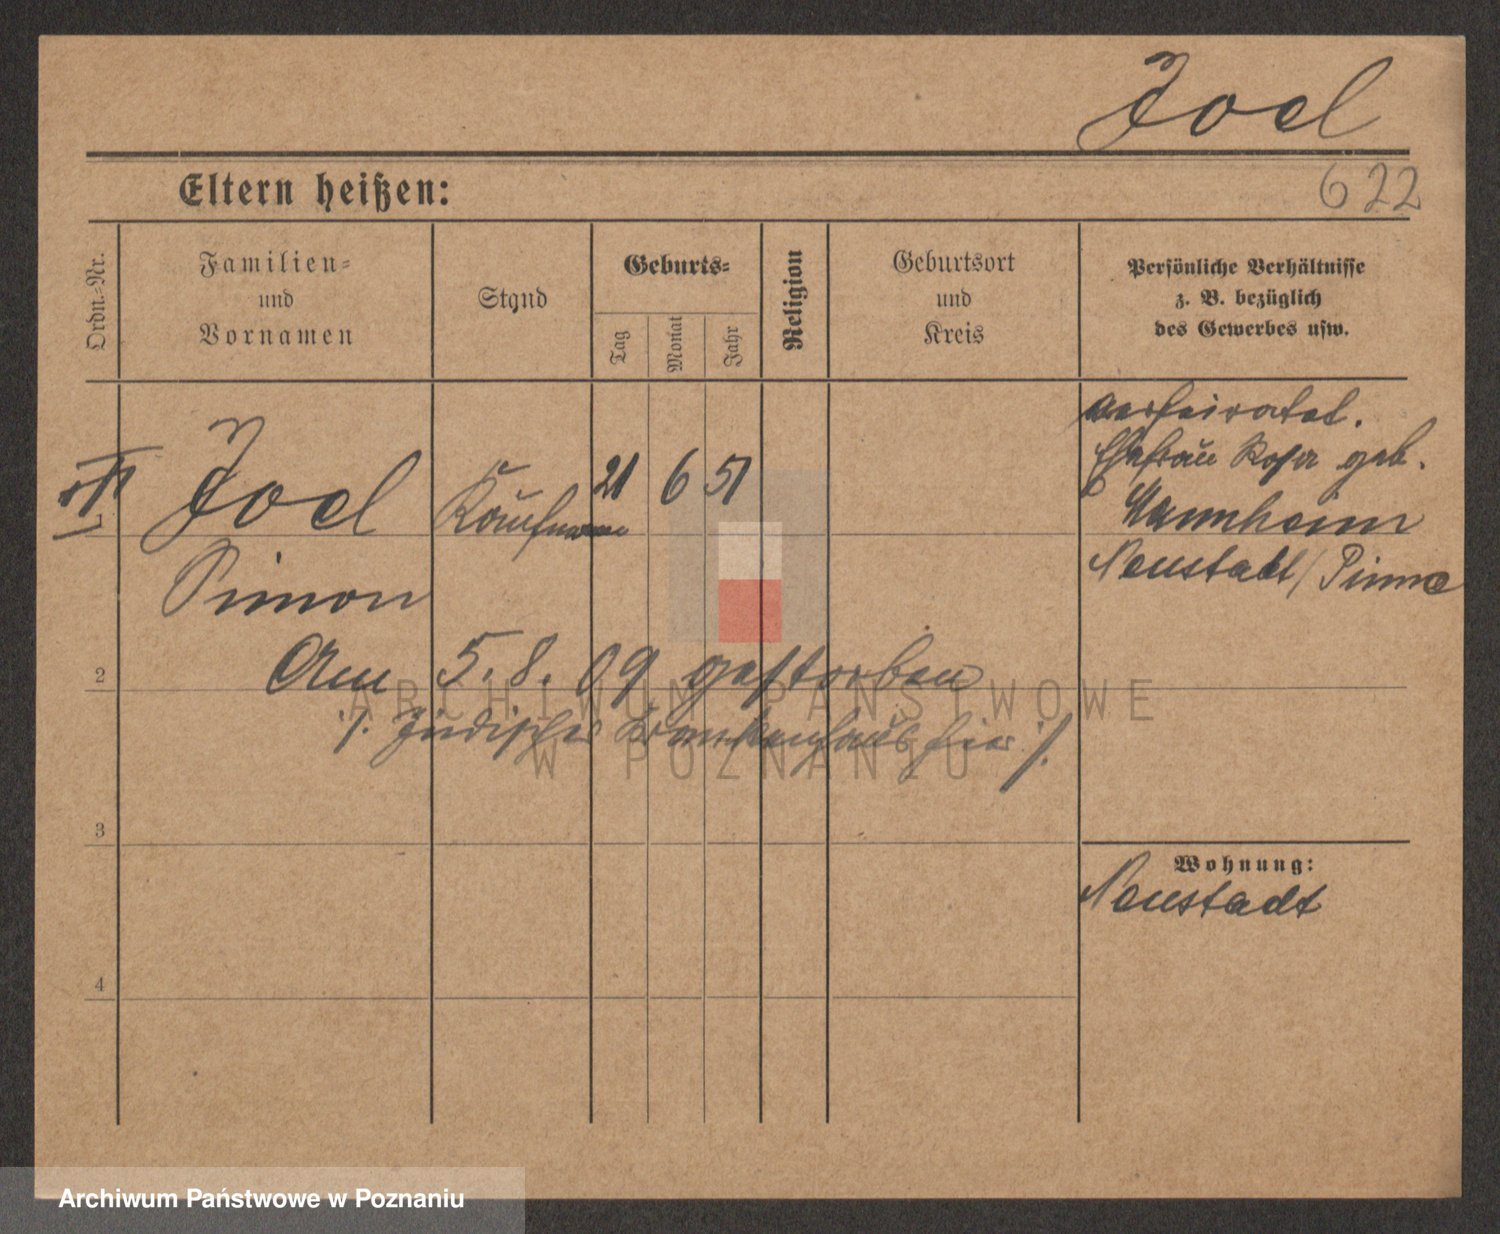 Joel
622
Eltern heißen:
Ordn.-Nr.
Familien-
und
Vornamen
Stand
Geburts-
Tag
Monat
Jahr
Religion
Geburtsort
und
Kreis
Persönliche Verhältnisse
z. B. bezüglich
des Gewerbes usw.
1
Joel
Simon
Kaufmann
21 6 51
verheiratet.
Ehefrau Rosa geb.
Mannheim
Neustadt / Pinne
2
Am 5. 8. 09 gestorben
/. Jüdisches Krankenhaus hier ./.
ARCHIWUM PAŃSTWOWE
W POZNANIU
3
Wohnung:
Neustadt
4
Archiwum Państwowe w Poznaniu